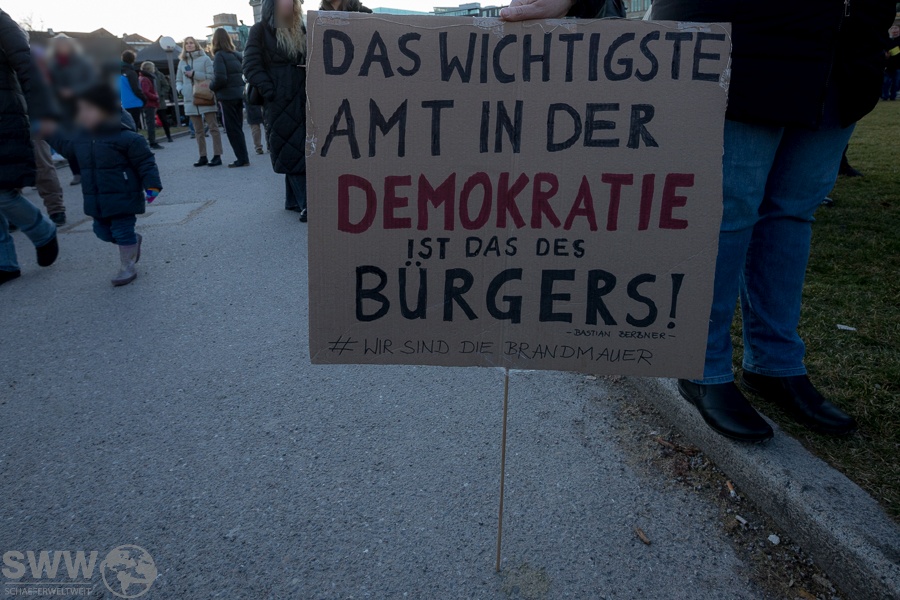 DAS WICHTIGSTE
AMT IN DER
DEMOKRATIE
IST DAS DES
BÜRGERS!
- BASTIAN BERBNER -
# WIR SIND DIE BRANDMAUER
SWW
SCHAEFERWELTWEIT